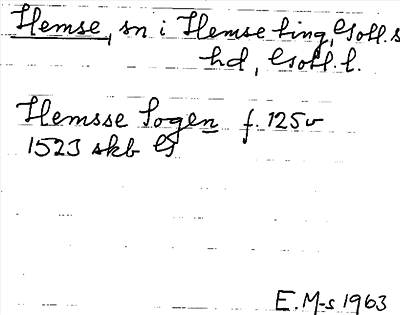 Hemse, sn i Hemse ting, Gotl. s
hd, Gotl. l.
Hemsse Sogen f. 125v
1523 skb G
E. M-s 1963